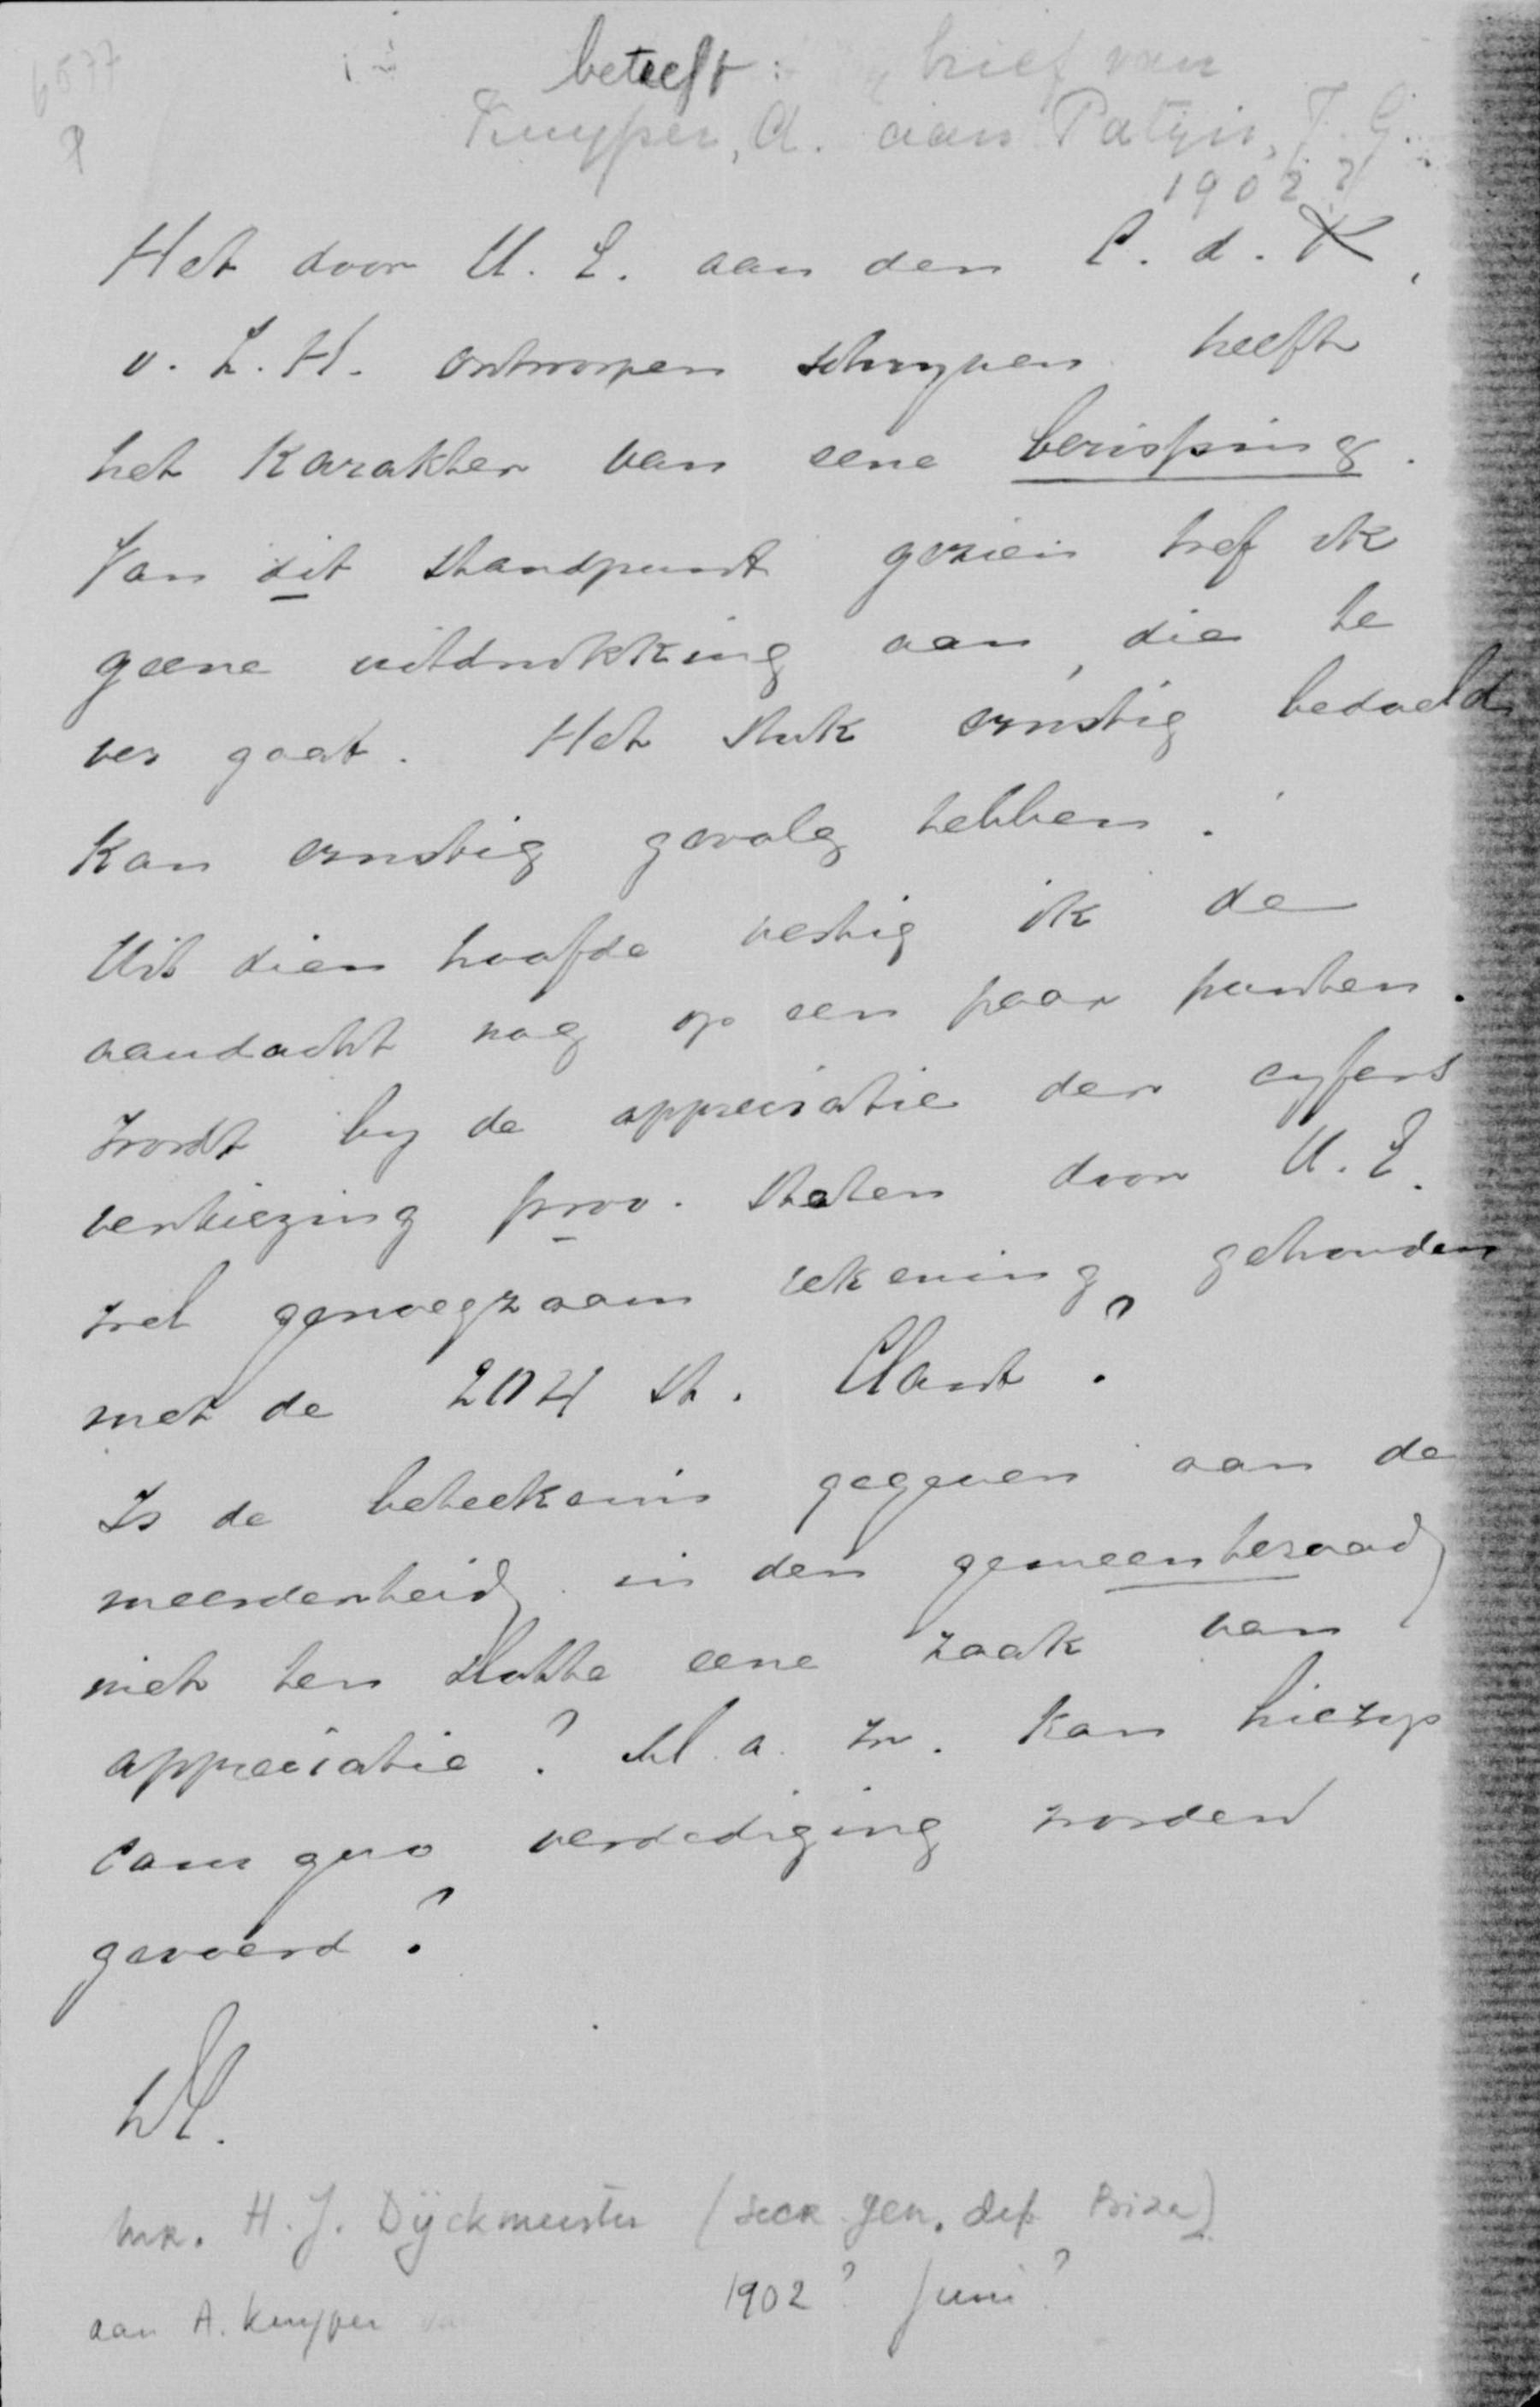 6577
betreft: brief van
Kuyper, A. aan Patijn, J. G.
1902?
Het door U. E. aan den C. d. K.
v. Z. H. ontworpen schrijven heeft
het karakter van eene berisping.
Van dit standpunt gezien tref ik
geene uitdrukking aan, die te
ver gaat. Het stuk ernstig bedoeld
kan ernstig gevolg hebben.
Uit dien hoofde vestig ik de
aandacht nog op een paar punten.
Wordt by de appreciatie der cyfers
verkiezing prov. Staten door U. E.
wel genoegzaam rekening gehouden
met de 2024 st. Clant?
Is de beteekenis gegeven aan de
meerderheid in den gemeenteraad
niet ten slotte eene zaak van
appreciatie? M. a. w. kan hierop
casu quo verdediging worden
gevoerd?
Mr. H. J. Dijckmeester (secr. gen. dep. Biza)
aan A. Kuyper 1902? Juni?